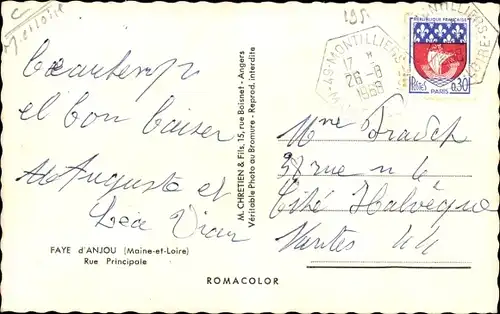 C
M. et Loire
195
49-MONTILLIERS
17 H
26-8
1969
REPUBLIQUE FRANÇAISE
POSTES 0,30
PARIS
Beau temps
et bon baiser
Auguste et
Léa Viau
FAYE d'ANJOU (Maine-et-Loire)
Rue Principale
M. CHRETIEN & Fils, 15, rue Boisnet - Angers
Véritable Photo au Bromure - Reprod. interdite
Mme
rue n
Cité Halvêque
Nantes 44
ROMACOLOR